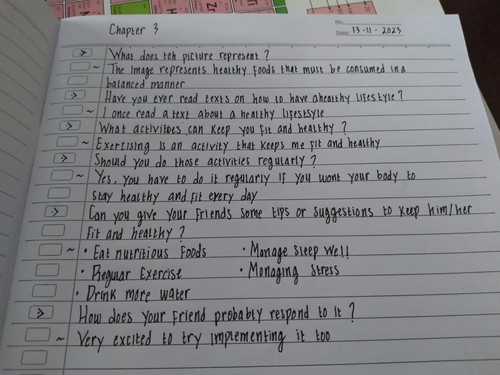 Chapter 3
No:
Date: 13-11-2023
> What does teh picture represent ?
~ The Image represents healthy foods that must be consumed in a
balanced manner
> Have you ever read texts on how to have ahealthy lifestyle ?
~ I once read a text about a healthy lifestsyle
> What activitbes can keep you fit and healthy ?
~ Exercising Is an activity that keeps me fit and healthy
> Should you do those activities regularly ?
~ Yes, you have to do it regularly if you wont your body to
stay healthy and fit every day
> Can you give your friends some tips or suggestions to keep him/her
fit and healthy ?
~ • Eat nutritious Foods • Manage sleep well
• Regular Exercise • Managing stress
• Drink more water
> How does your friend probably respond to it ?
~ Very excited to try implementing it too